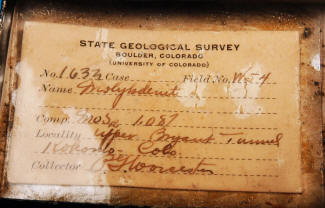 STATE GEOLOGICAL SURVEY
BOULDER, COLORADO
(UNIVERSITY OF COLORADO)
No. 1633 Case Field No. 
Name Molybdenit
Comp. MoS2
Locality Upper Bryant Tunnel
Kokomo Colo
Collector P.G. Worcester